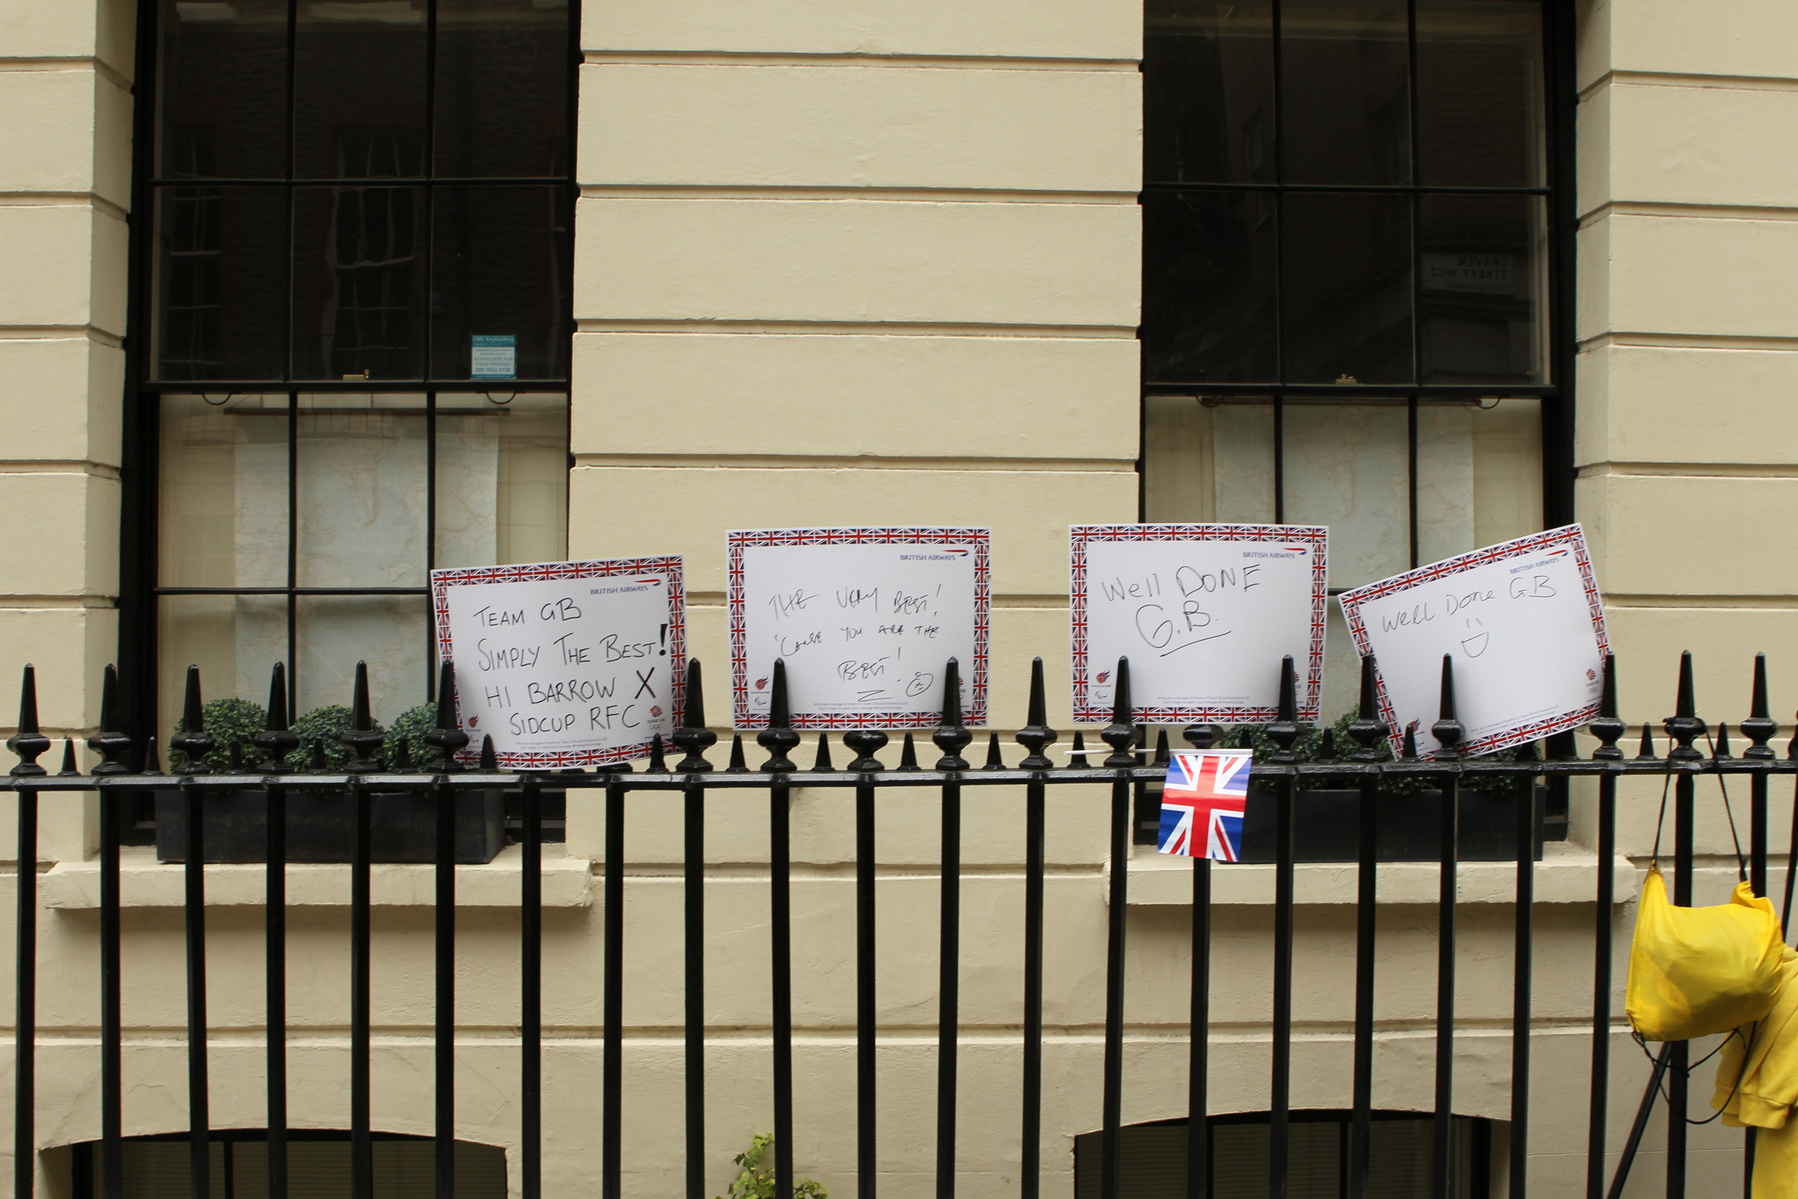 CRAVEN
STREET WC2
BRITISH AIRWAYS
TEAM GB
SIMPLY THE BEST!
HI BARROW X
SIDCUP RFC
BRITISH AIRWAYS
THE VERY BEST!
'Cause YOU ARE THE
BEST!
BRITISH AIRWAYS
Well DONE
G.B.
BRITISH AIRWAYS
Well Done GB